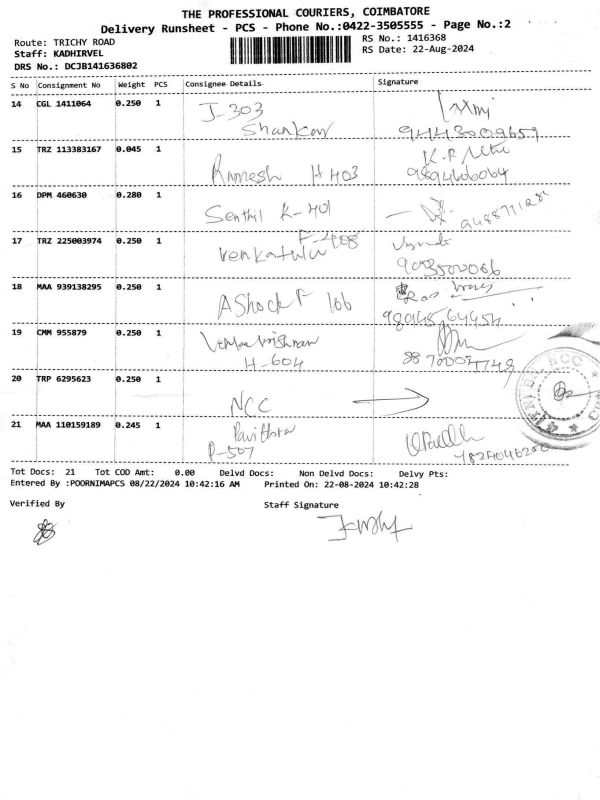 THE PROFESSIONAL COURIERS, COIMBATORE
Delivery Runsheet - PCS - Phone No.:0422-3505555 - Page No.:2
Route: TRICHY ROAD
RS No.: 1416368
Staff: KADHIRVEL
RS Date: 22-Aug-2024
DRS No.: DCJB141636802
S No Consignment No Weight PCS Consignee Details Signature
14 CGL 1411064 0.250 1 J-303
Shankar 9443009659
15 TRZ 113383167 0.045 1
Ramesh H 403 9894606064
16 DPM 460630 0.280 1 Senthil K-401
17 TRZ 225003974 0.250 1 F-408
Venkatulu
18 MAA 939138295 0.250 1 AShock F 166
19 CMM 955879 0.250 1
H-604
20 TRP 6295623 0.250 1 NCC
21 MAA 110159189 0.245 1 Pavithra
P-507
Tot Docs: 21 Tot COD Amt: 0.00 Delvd Docs: Non Delvd Docs: Delvy Pts:
Entered By :POORNIMAPCS 08/22/2024 10:42:16 AM Printed On: 22-08-2024 10:42:28
Verified By Staff Signature